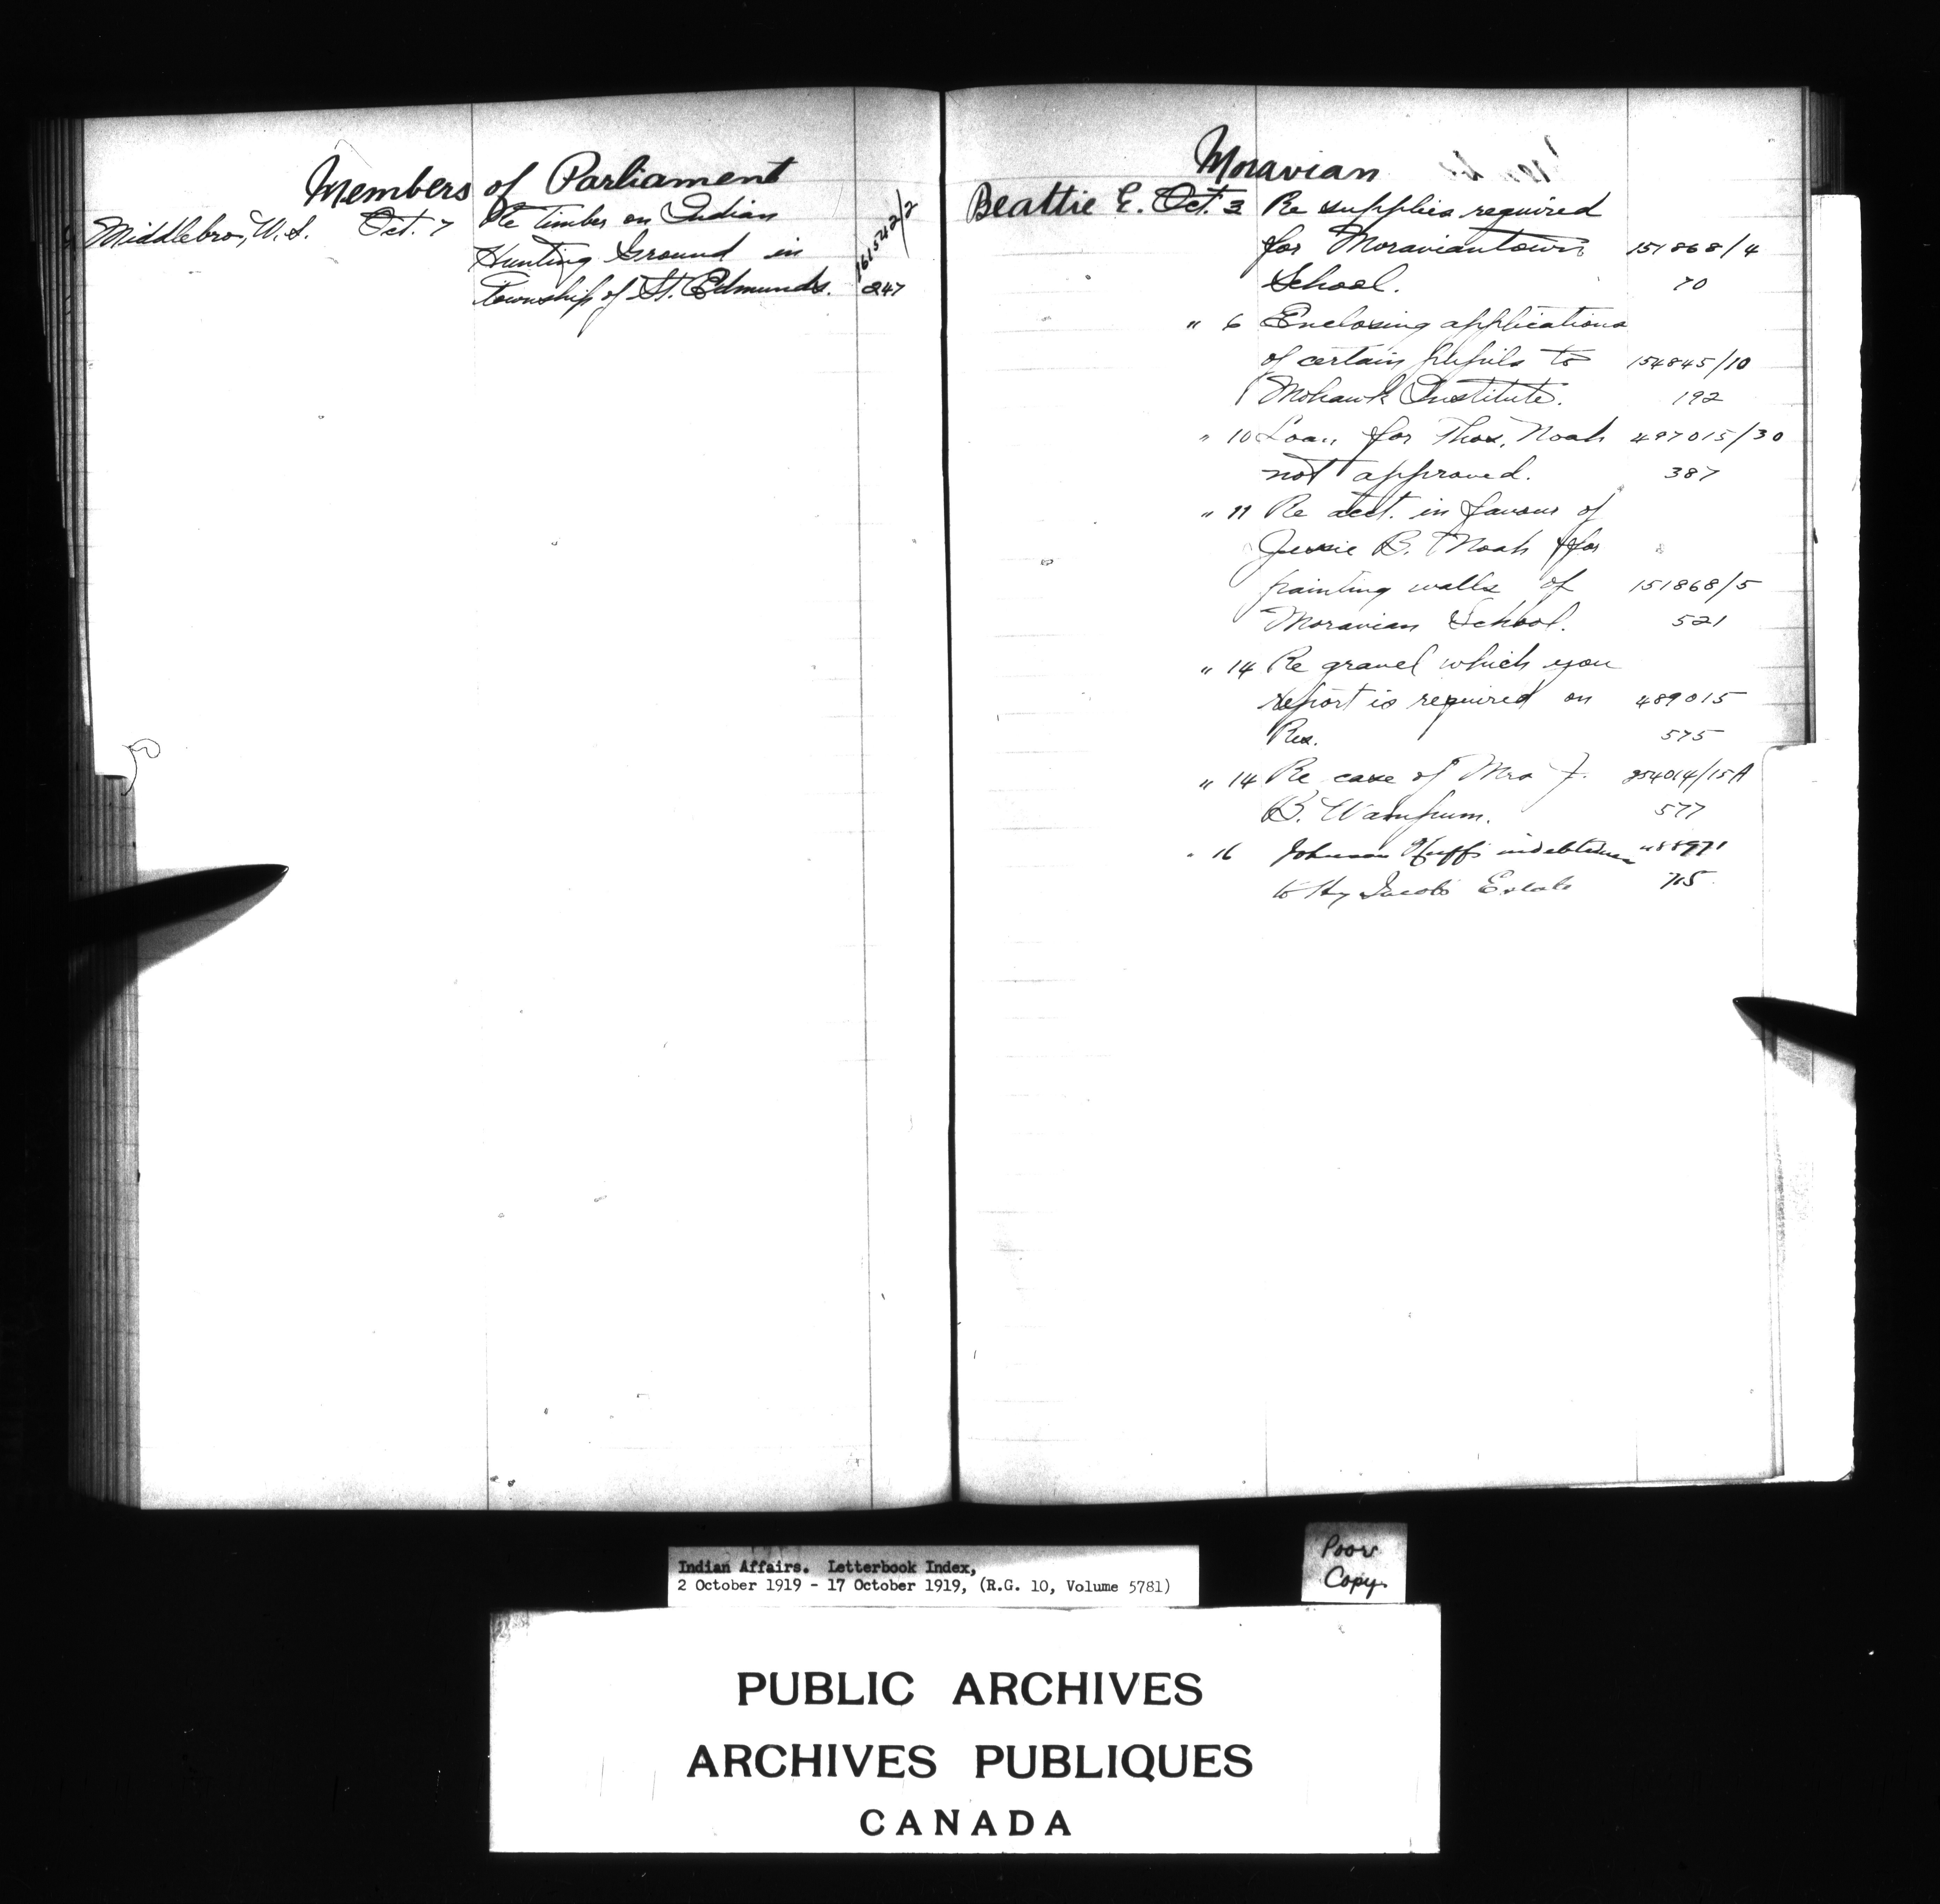 Members of Parliament
Middlebro, W.S. Oct. 7 Re Timber on Indian
Hunting Ground in 161542/2
Township of St. Edmunds. 247
Moravian
Beattie E. Oct. 3 Re supplies required
for Moraviantown 151868/4
School. 70
" 6 Enclosing applications
of certain pupils to 154845/10
Mohawk Institute. 192
" 10 Loan for Thos. Noah 497015/30
not approved. 387
" 11 Re acct. in favour of
Jessie B. Noah for
painting walls of 151868/5
Moravian School. 521
" 14 Re gravel which you
report is required on 489015
Res. 575
" 14 Re case of Mrs J. 254014/15A
B. Wampum. 577
" 16 Johnson Huff's indebtedness 488971
to Hy Jacobs Estate 715
Indian Affairs. Letterbook Index,
2 October 1919 - 17 October 1919, (R.G. 10, Volume 5781)
Poor
Copy.
PUBLIC ARCHIVES
ARCHIVES PUBLIQUES
CANADA